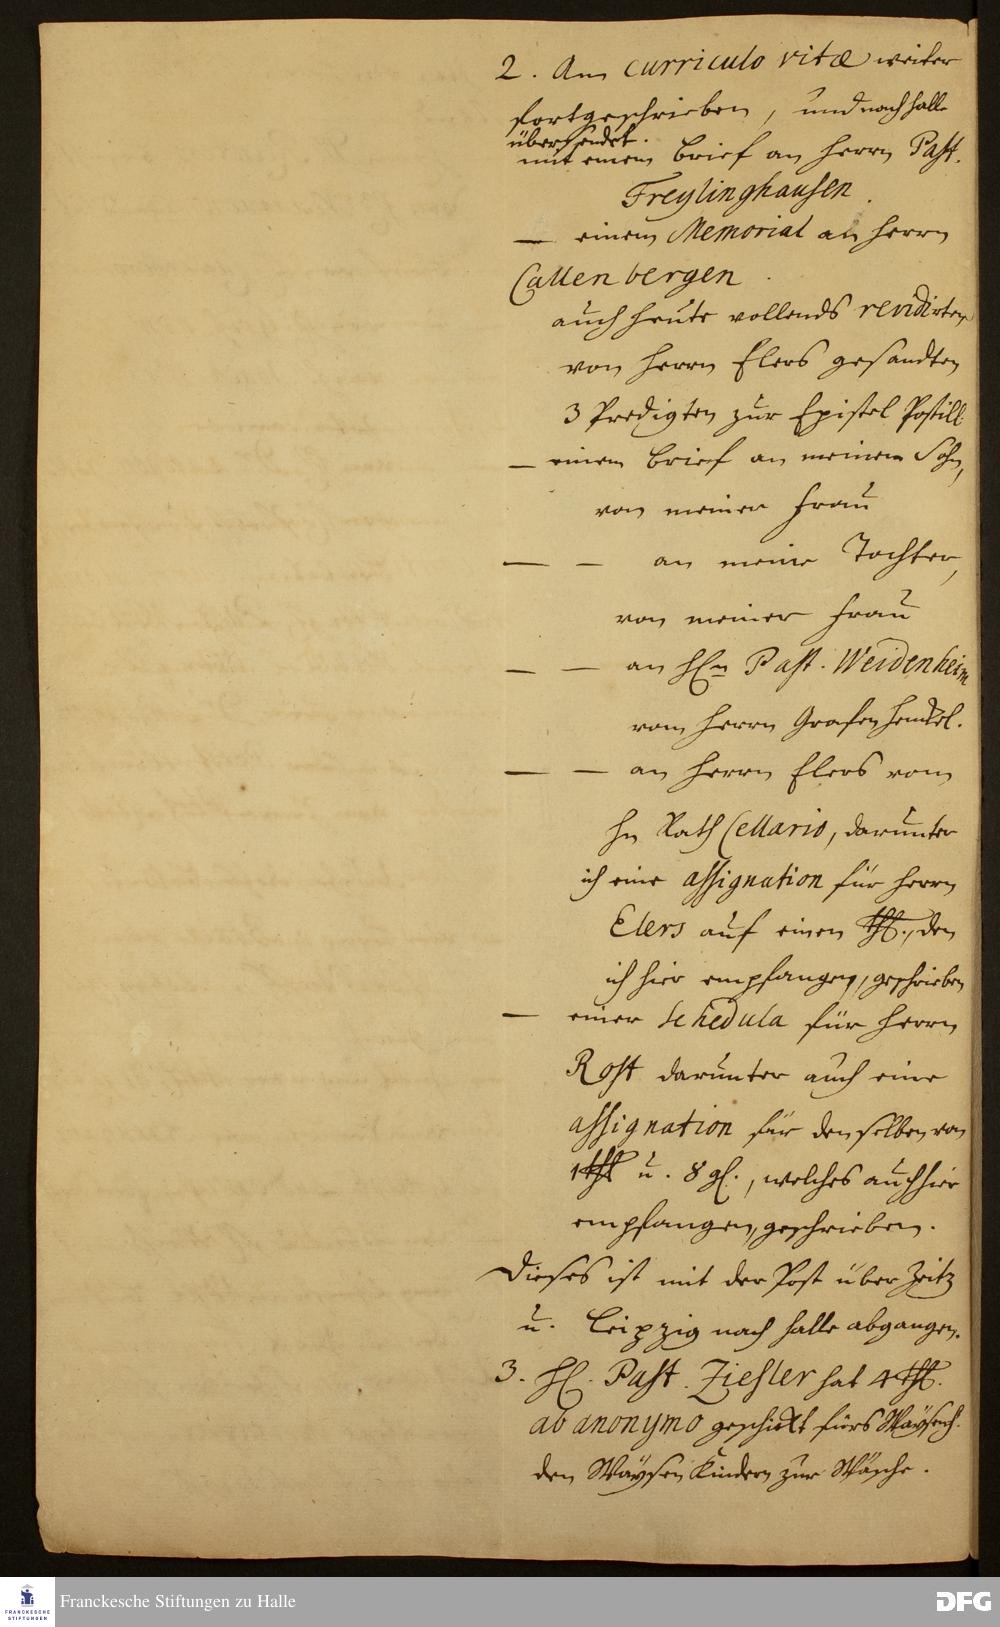 2. Am curriculo vitæ weiter
fortgeschrieben, und nach Halle
übersendet.
mit einem Brief an Herrn Past.
Freylinghausen.
— einem Memorial an Herrn
Callenbergen
auch heute vollends revidirten
von Herrn Elers gesandten
3 Predigten zur Epistel Postill
— einem Brief an meinen Sohn,
von meiner Frau
— — an meine Tochter,
von meiner Frau
— — an H.n Past. Weidenheim
vom Herrn Grafen Henckel.
— — an Herrn Elers vom
Hn Rath Cellario, darunter
ich eine assignation für Herrn
Elers auf einen thl., den
ich hier empfangen, geschrieben
— einer schedula für Herrn
Rost darunter auch eine
assignation für denselben von
1 thl u. 8 gl., welches auch hier
empfangen, geschrieben.
Dieses ist mit der Post über Zeitz
u. Leipzig nach Halle abgangen.
3. H. Past. Ziesler hat 4 thl.
ab anonymo geschickt fürs Waysenh.
den Waysen Kindern zur Wäsche.
FRANCKESCHE
STIFTUNGEN
Franckesche Stiftungen zu Halle
DFG